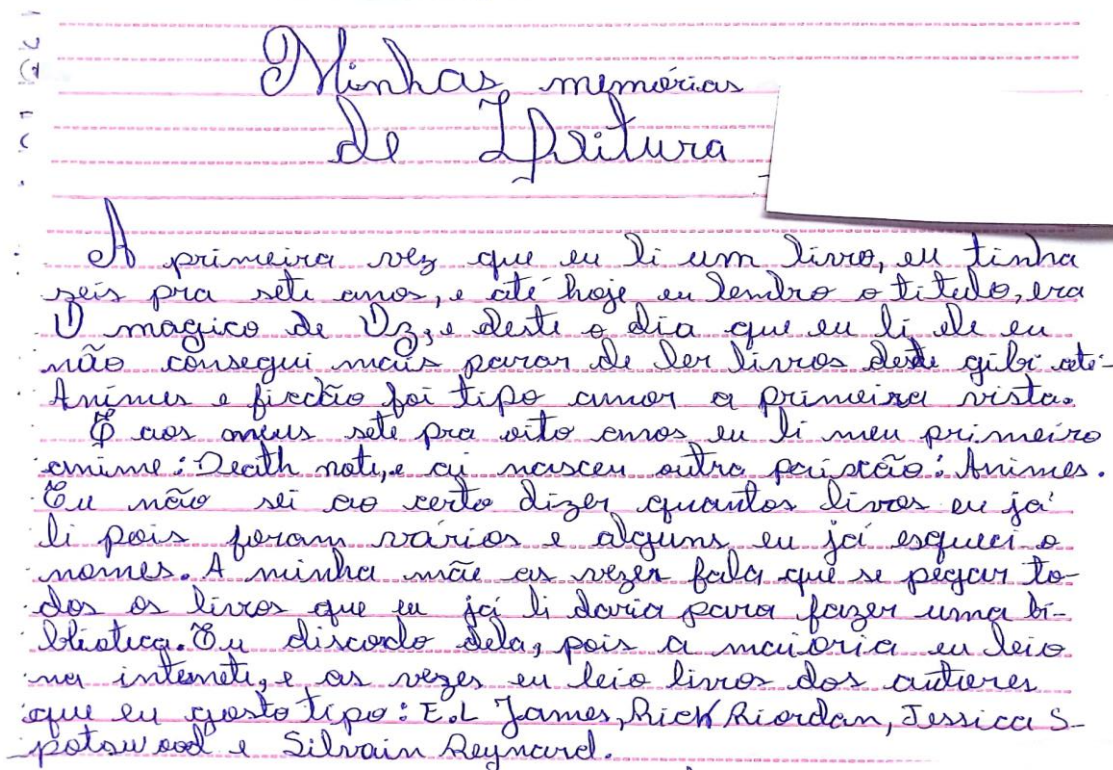 Minhas memórias
de Leitura
A primeira vez que eu li um livro, eu tinha
seis pra sete anos, e até hoje eu lembro o titulo, era
O magico de Oz, e deste o dia que eu li ele eu
não consegui mais parar de ler livros desde gibi até
Animes e ficcão foi tipo amor a primeira vista.
E aos meus sete pra oito anos eu li meu primeiro
anime: Death note, e ai nasceu outra paixão: Animes.
Eu não sei ao certo dizer quantos livros eu já
li pois foram vários e alguns eu já esqueci o
nomes. A minha mãe as vezes fala que se pegar to-
dos os livros que eu já li daria para fazer uma bi-
blioteca. Eu discordo dela, pois a maioria eu leio
na internete, e as vezes eu leio livros dos autores
que eu gosto tipo: E.L James, Rick Riordan, Jessica S-
potswood e Silvain Reynard.